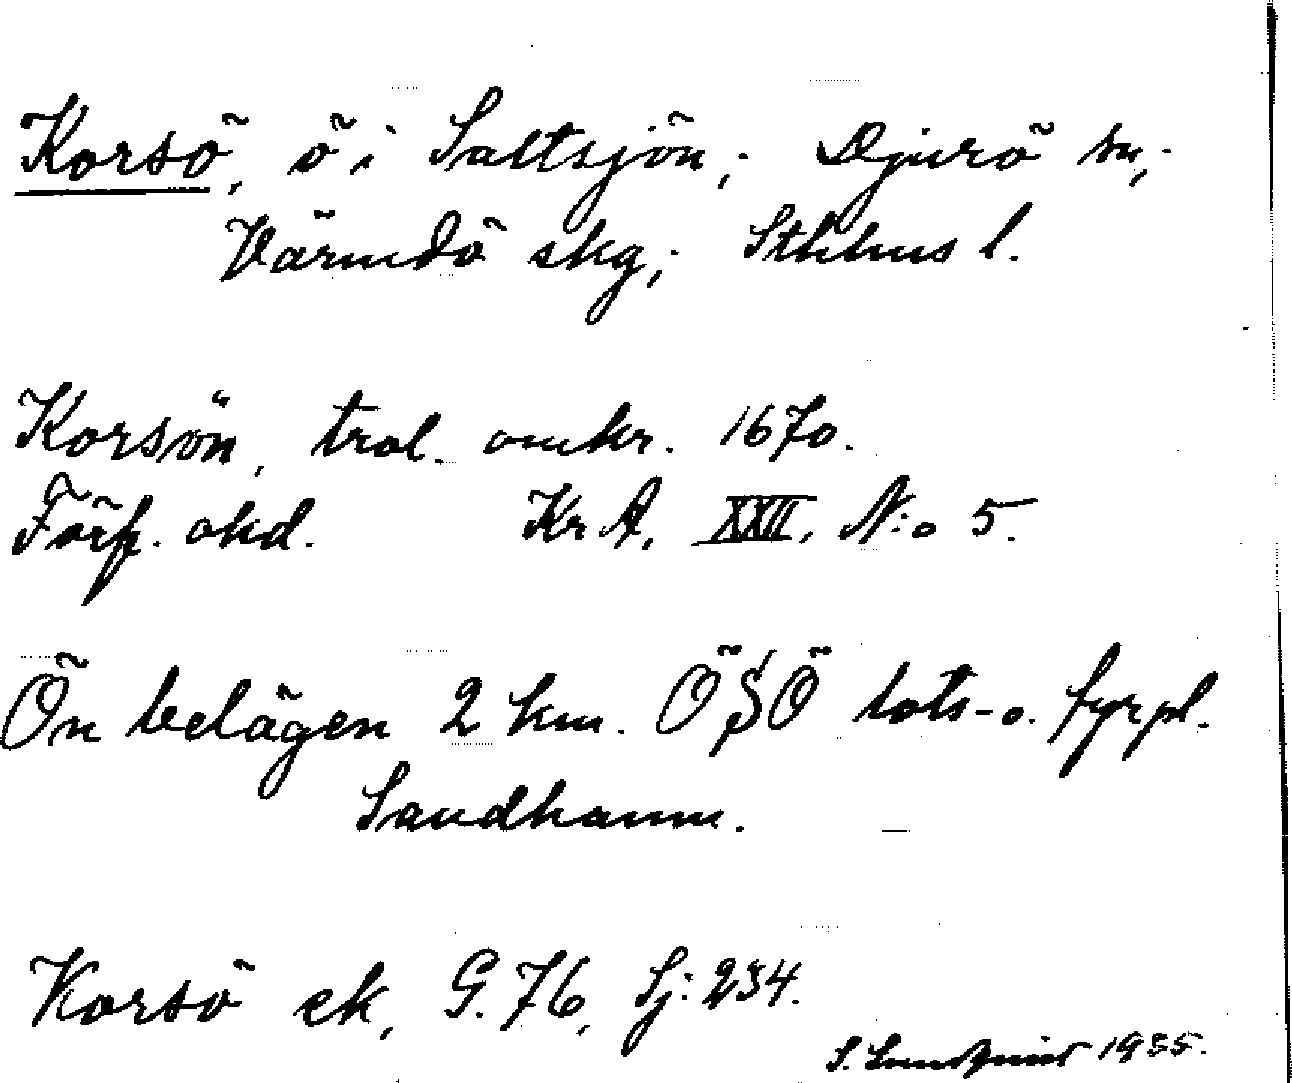 Korsö, ö i Saltsjön; Djurö sn;
Värmdö skg; Sthlms l.
Korsön, trol. omkr. 1670.
Förf. okd. Kr A, XXII, N:o 5.
Ön belägen 2 km. ÖSÖ lots- o. fyrpl.
Sandhamn.
Korsö ek, G. 76, Sj: 234.
S. Lundquist 1935.